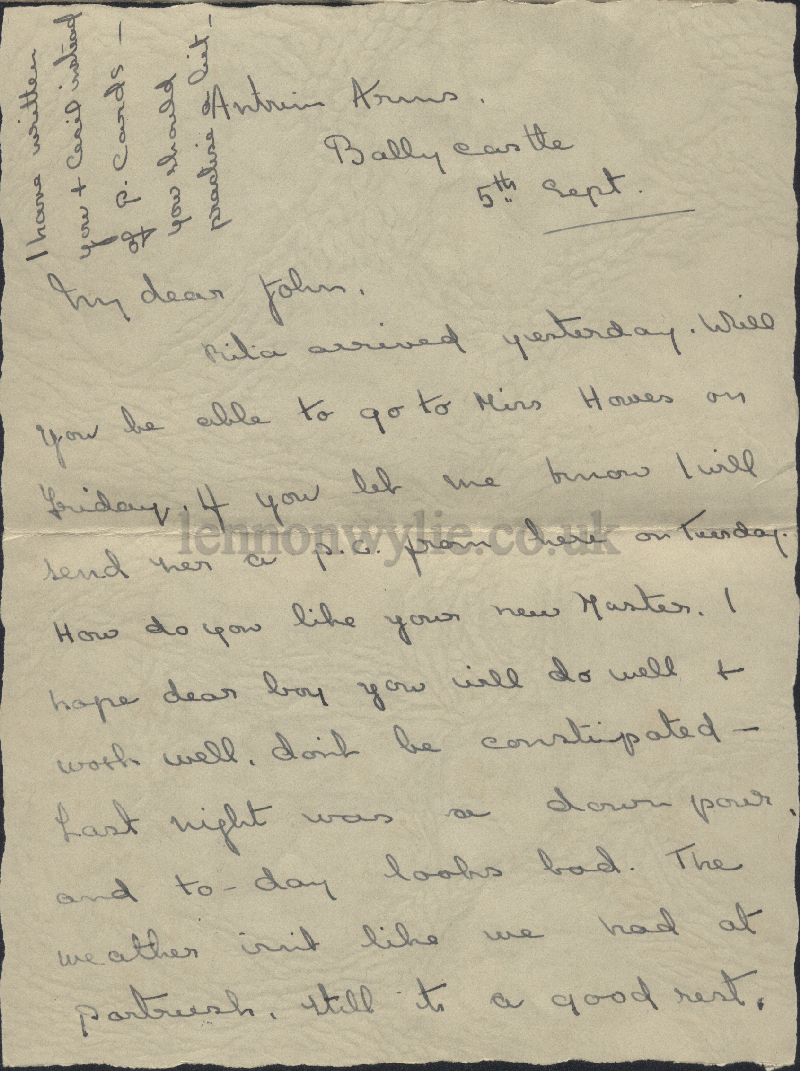 I have written
you + Cecil instead
of p. Cards —
you should
practise a bit —
Antrim Arms.
Ballycastle
5th Sept.
My dear John,
Rita arrived yesterday. Will
you be able to go to Miss Howes on
Friday. If you let me know I will
send her a p.c. from here on Tuesday.
lennonwylie.co.uk
How do you like your new Master. I
hope dear boy you will do well +
work well. don't be constipated —
Last night was a down pour.
and to-day looks bad. The
weather isn't like we had at
portrush. still its a good rest.